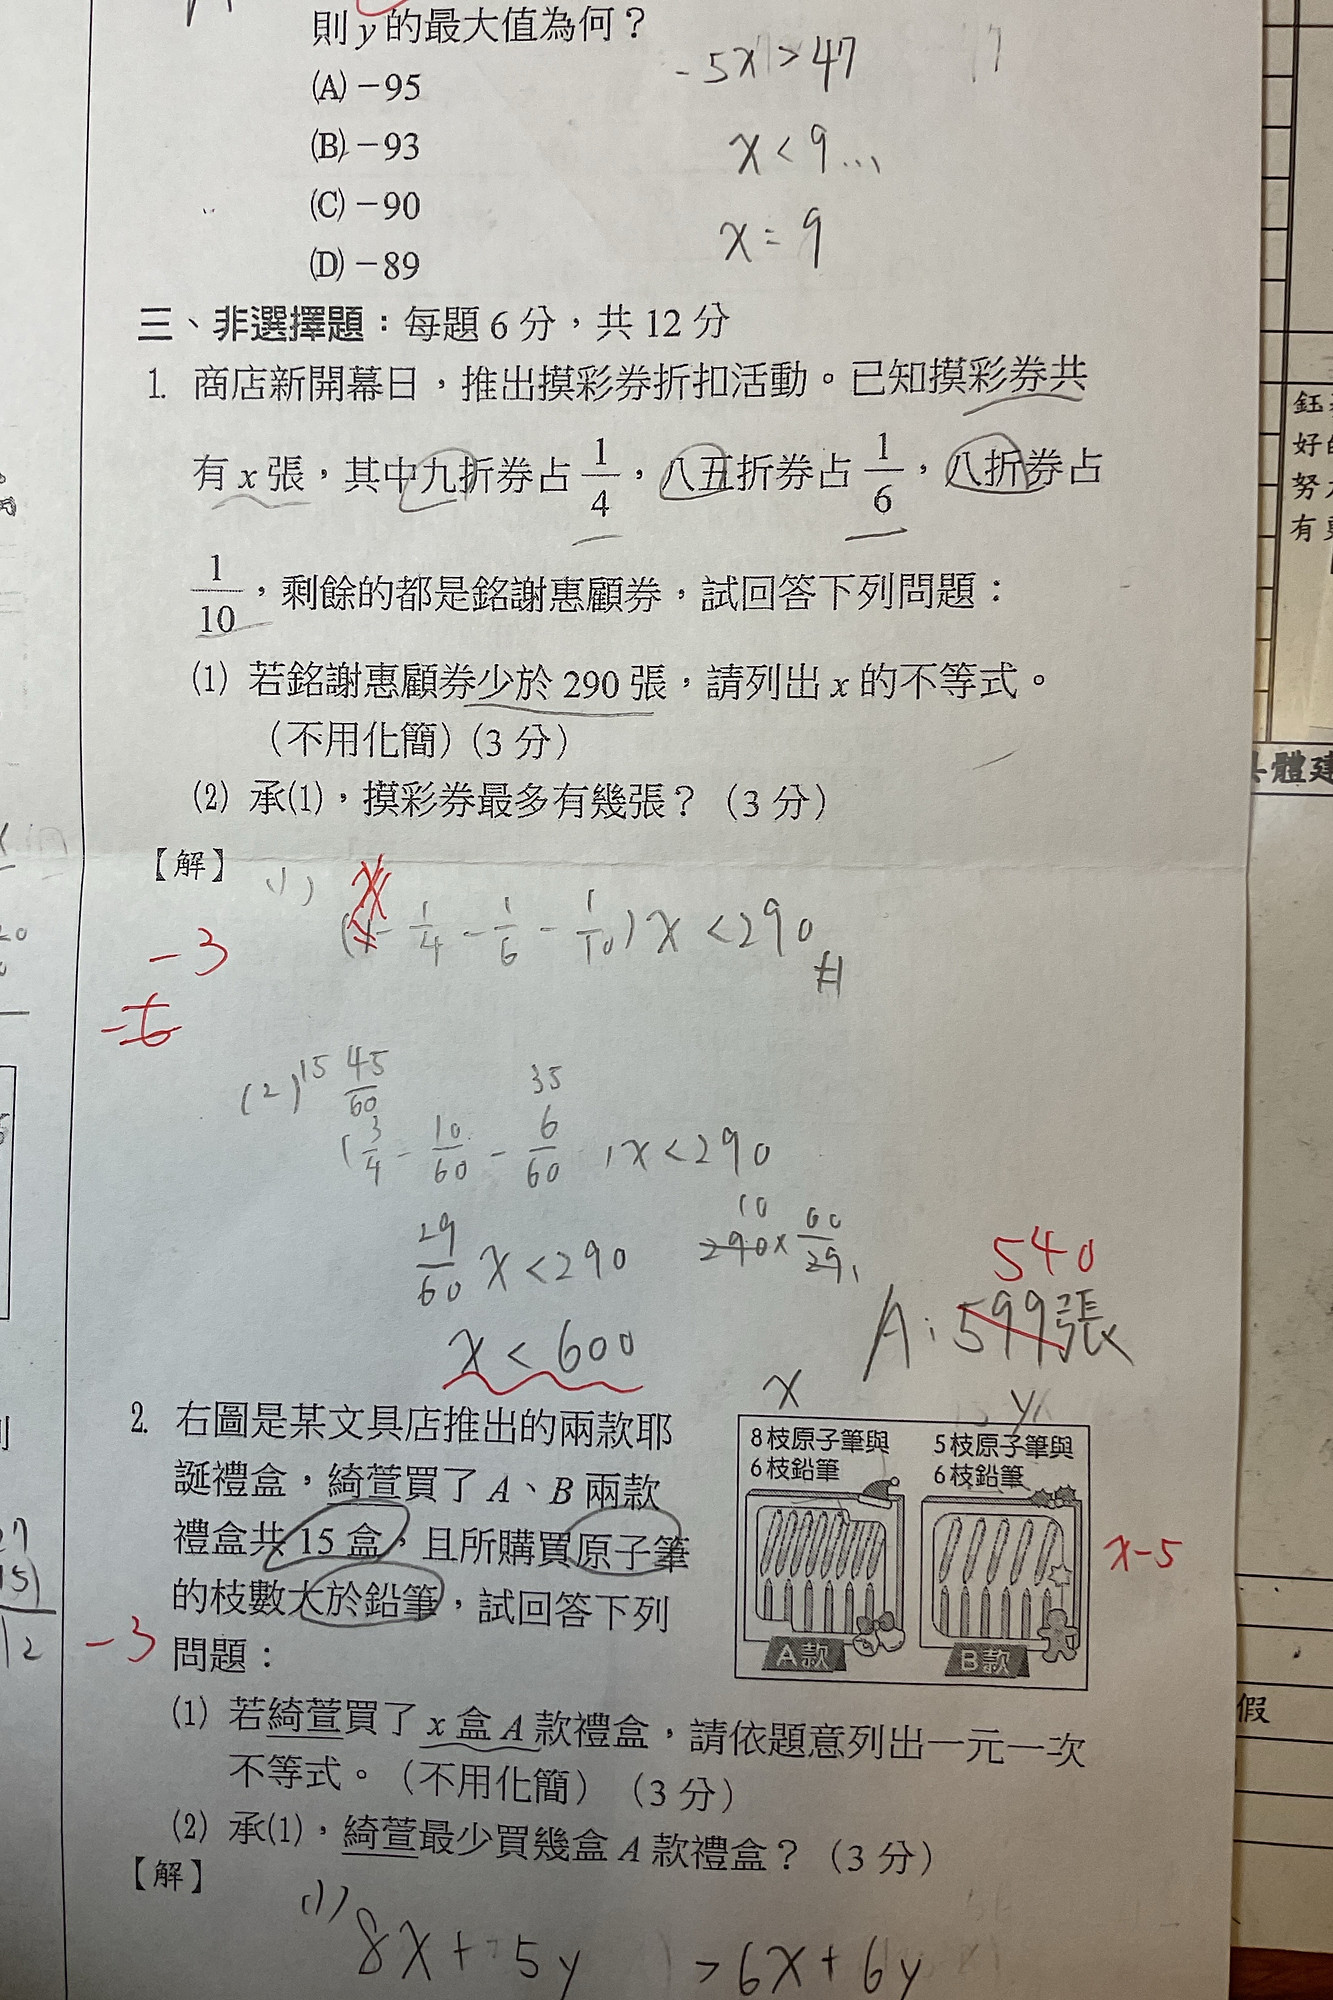 則 y 的最大值為何？
(A) −95
(B) −93
(C) −90
(D) −89
-5x > 47
x < 9...
x = 9
三、非選擇題：每題 6 分，共 12 分
1. 商店新開幕日，推出摸彩券折扣活動。已知摸彩券共
有 x 張，其中九折券占 1/4，八五折券占 1/6，八折券占
1/10，剩餘的都是銘謝惠顧券，試回答下列問題：
(1) 若銘謝惠顧券少於 290 張，請列出 x 的不等式。
（不用化簡）（3 分）
(2) 承(1)，摸彩券最多有幾張？（3 分）
【解】
(1)
x
(1 - 1/4 - 1/6 - 1/10) x < 290
-3
-6
(2) 15 45/60 35
(3/4 - 10/60 - 6/60) x < 290
29/60 x < 290
10 60
290 × 60/29
x < 600
540
A: 599張
2. 右圖是某文具店推出的兩款耶
誕禮盒，綺萱買了 A、B 兩款
禮盒共 15 盒，且所購買原子筆
的枝數大於鉛筆，試回答下列
問題：
-3
x y
8枝原子筆與
6枝鉛筆
5枝原子筆與
6枝鉛筆
A款
B款
x-5
(1) 若綺萱買了 x 盒 A 款禮盒，請依題意列出一元一次
不等式。（不用化簡）（3 分）
(2) 承(1)，綺萱最少買幾盒 A 款禮盒？（3 分）
【解】
(1)
8x + 5y > 6x + 6y
好
努
有
體建
假